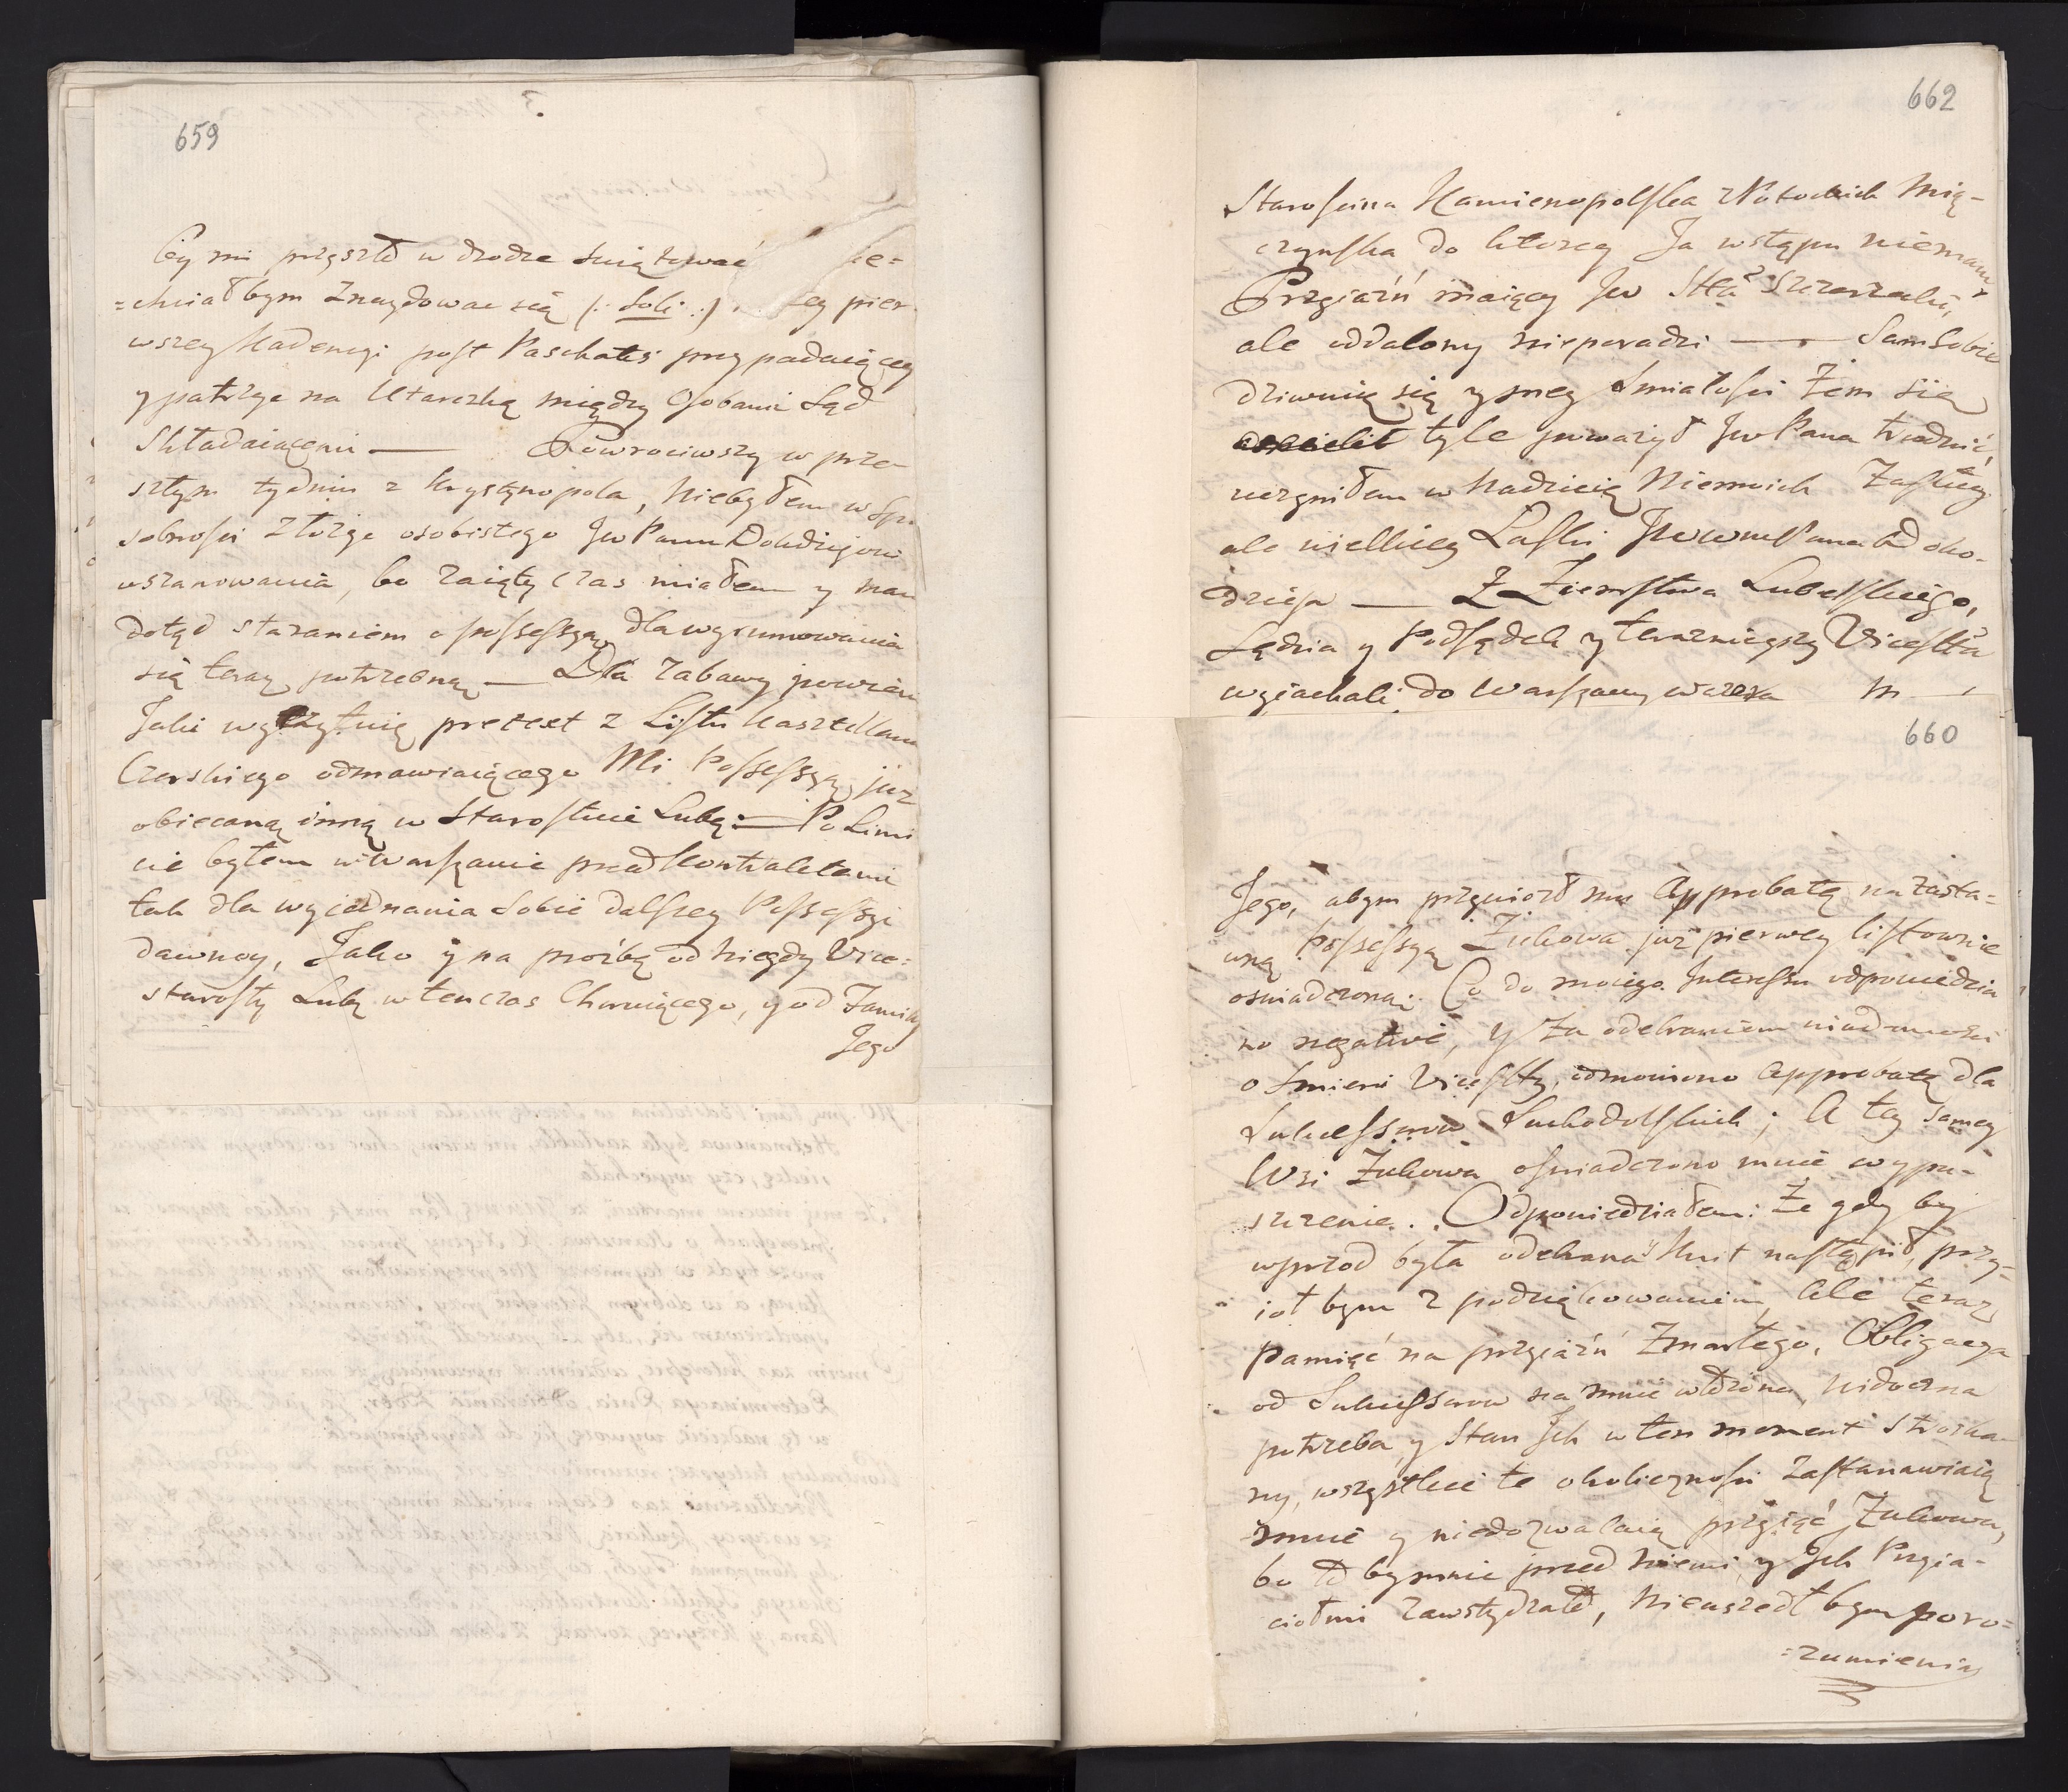 659
by mi przyszło w drodze swiątować
=chciałbym znaydowac się (: Soli :) pier
wszey Kadencyi post Paschatis przypadaiącey
y patrzyc na Utarczkę między Osobami Sąd
Składaiącemi — Powrociwszy w prze
szłym tygdniu z Krystynopola, niebyłem w spo
sobnosci złożyc osobistego Jw Panu Dobdziejowi
uszanowania, bo zaięty czas miałem y mam
dotąd staraniem o possessyą dla wyrumowania
się teraz potrzebną — Dla zabawy powiem
Jaki wytkną pretext z Listu Kasztellana
Czerskiego odmawiaiącego Mi Possessyą już
obiecaną inną w Starostwie Lubą: — Po Limi
cie byłem w Warszawie przed Kontraktami
tak dla wyiednania sobie dalszey Possessyi
dawney, Jako y na proźbę od niegdy Vice=
starosty Lubą wtenczas Choruiącego, y od Familij
Jego
662
Staroscina Kamienopolska z Potockich Mią-
czynska do ktorey Ja wstępu niemam,
Przyiaźń maiący Jw Stta Szczerzecki,
ale oddalony nieporadzi — Sam sobie
dziwuię się y mey smiałosci żem się
tyle poważył Jw Pana trudnić,
uczyniłem w nadzieię Niemoich Zasług
ale wielkiey Łaski Jwwm Pana Dobro-
dzieja — Z Ziemstwa Lubelskiego,
Sędzia y Podsędek y teraznieyszy Vicestta
wyiachali do Warszawy wczora
660
Jego, abym przywiozł mu Approbatę na zasta=
wną Possessyą Żukowa już pierwey listownie
oswiadczoną: Co do moiego Interessu odpowiedzia
no negative, Y za odebraniem wiadomości
o Smierci Vicestty, odmowiono Approbatę dla
Sukcessorow Suchodolskich; A tey samey
Wsi Żukowa oswiadczono mnie wypu-
szczenie. Odpowiedziałem: Że gdy by
wprzod była odebrana y Kwit nastąpił, przy=
ioł bym z podziękowaniem, Ale teraz
pamięć na przyiaźń Zmarłego, Obligacya
od Sukcessorow na mnie włożona, widoczna
potrzeba, y Stan Jch w ten moment stroska
ny, wszystkie te okolicznosci zastanawiaią
mnie y niedozwalaią przyiąć Żukowa,
bo to by mnie przed niemi y Jch Przyia-
ciołmi zawstydzało, nieuszedł bym poro=
=zumienia